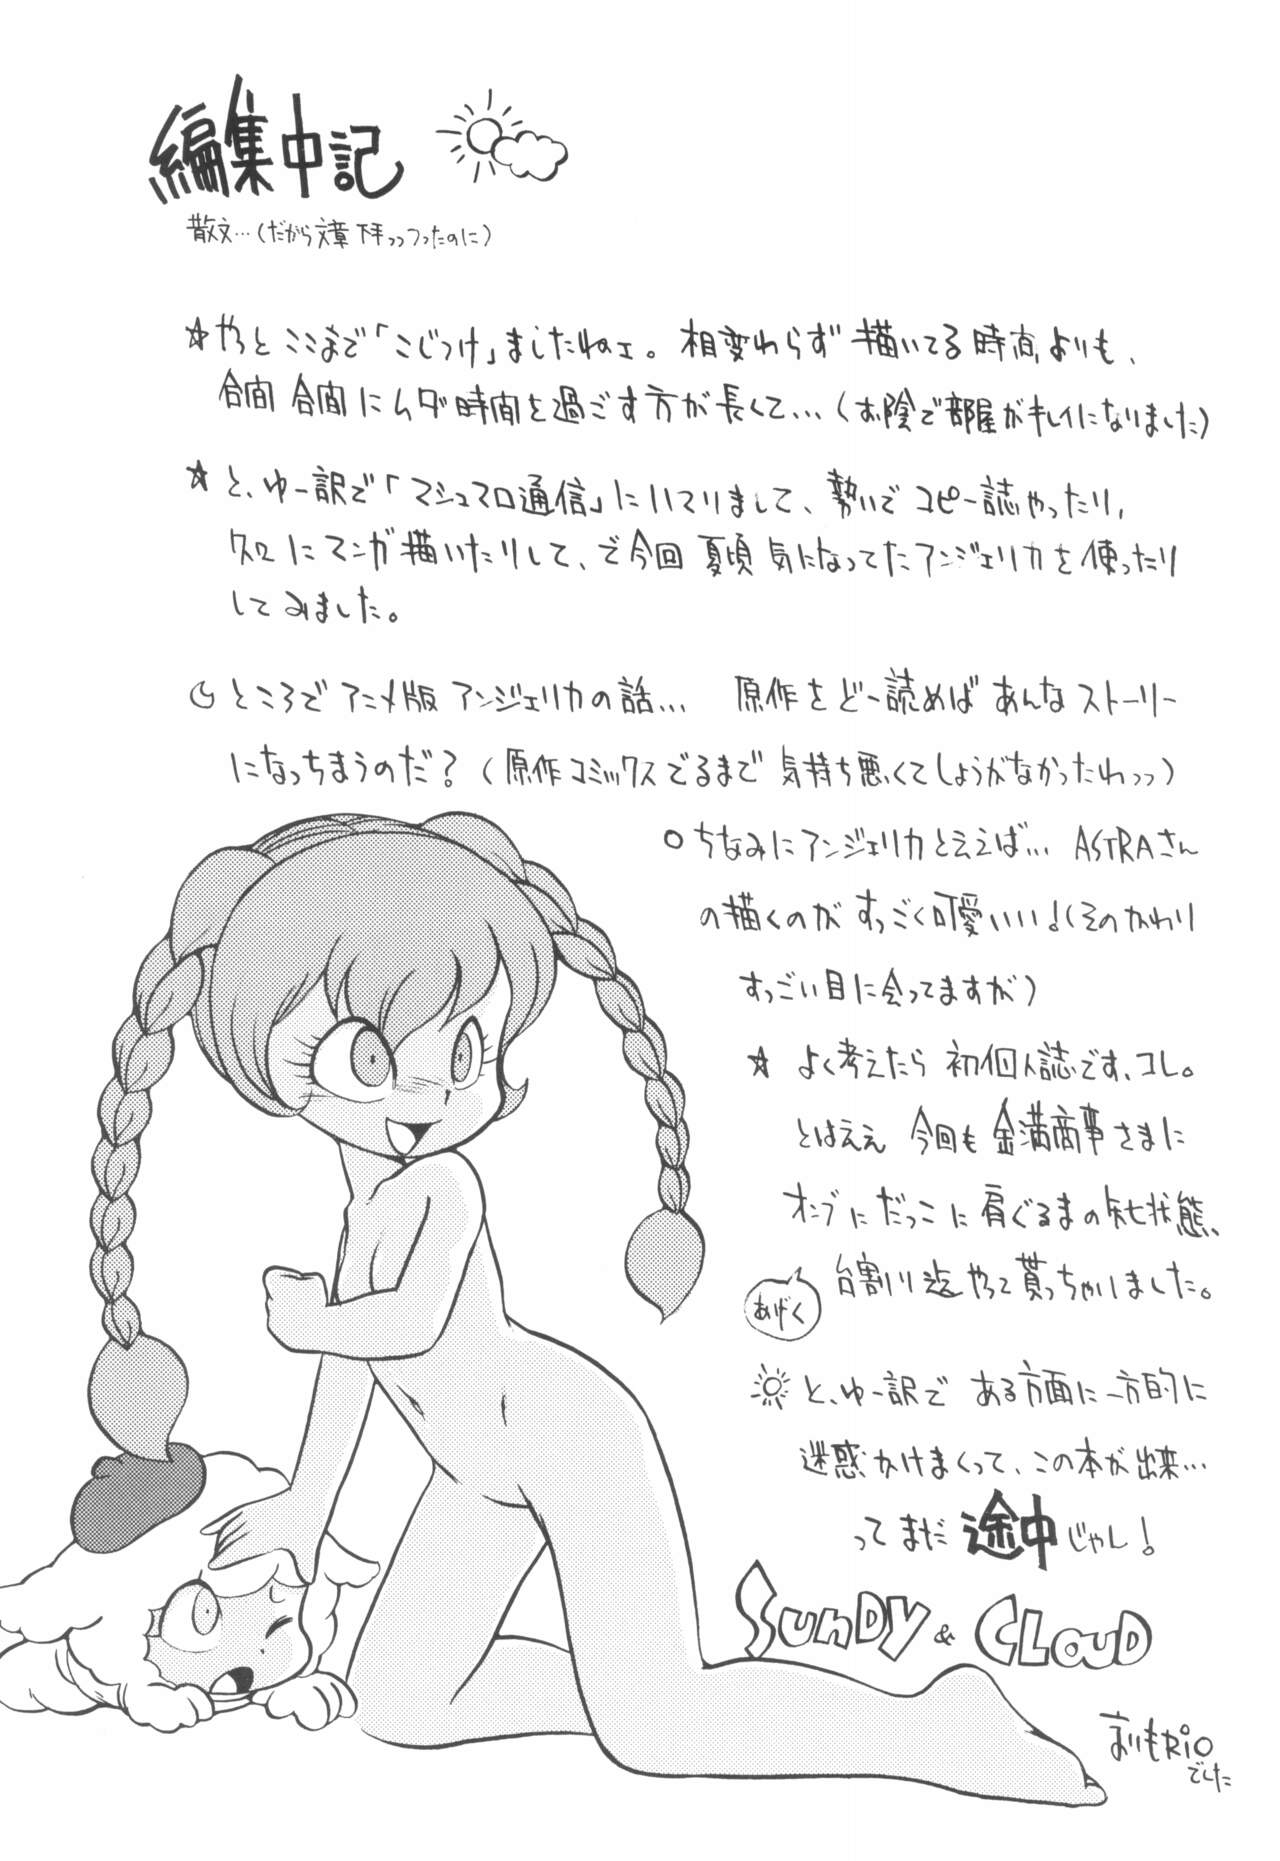 編集中記
散文…(だから文章下手っつったのに)
☆やっとここまで「こじつけ」ましたねェ。相変わらず描いてる時間よりも、
合間合間にムダ時間を過ごす方が長くて…(お陰で部屋がキレイになりました)
☆と、ゆー訳で「マシュマロ通信」にハマりまして、勢いでコピー誌やったり、
にマンガ描いたりして、で今回夏頃気になってたアンジェリカを使ったり
してみました。
ところでアニメ版アンジェリカの話… 原作をどー読めばあんなストーリー
になっちまうのだ?(原作コミックスでるまで気持ち悪くてしょうがなかったわっっ)
○ちなみにアンジェリカと云えば… ASTRAさん
の描くのがすっごく可愛いい!(そのかわり
すっごい目に会ってますが)
☆よく考えたら初個人誌です、コレ。
とはええ今回も金満商事さまに
オンブにだっこに肩ぐるまの状態、
あげく
台割り迄やって貰っちゃいました。
と、ゆー訳である方面に一方的に
迷惑かけまくって、この本が出来…
ってまだ途中じゃし!
SUNDY & CLOUD
まりもRIO
でした